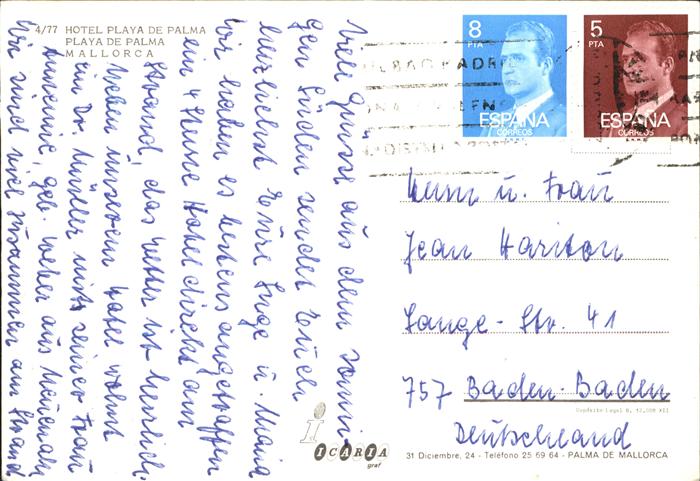 4/77 HOTEL PLAYA DE PALMA
PLAYA DE PALMA
MALLORCA
8
PTA
ESPAÑA
CORREOS
5
PTA
ESPAÑA
CORREOS
Viele Grüsse aus dem sonni-
gen Süden sendet Euch
herzlichst Eure Inge u. Maria
Wir haben es bestens angetroffen
ein 4 Sterne Hotel direkt am
Strand, das Wetter ist herrlich.
Neben unserem Hotel wohnt
ein Dr. Müller mit seiner Frau
Annemie, geb. Weber aus
Wir sind viel zusammen am Strand
Herrn u. Frau
Jean Hariton
Lange-Str. 41
757 Baden-Baden
Deutschland
Depósito Legal B. 12.000 XII
i
ICARIA
graf
31 Diciembre, 24 - Teléfono 25 69 64 - PALMA DE MALLORCA